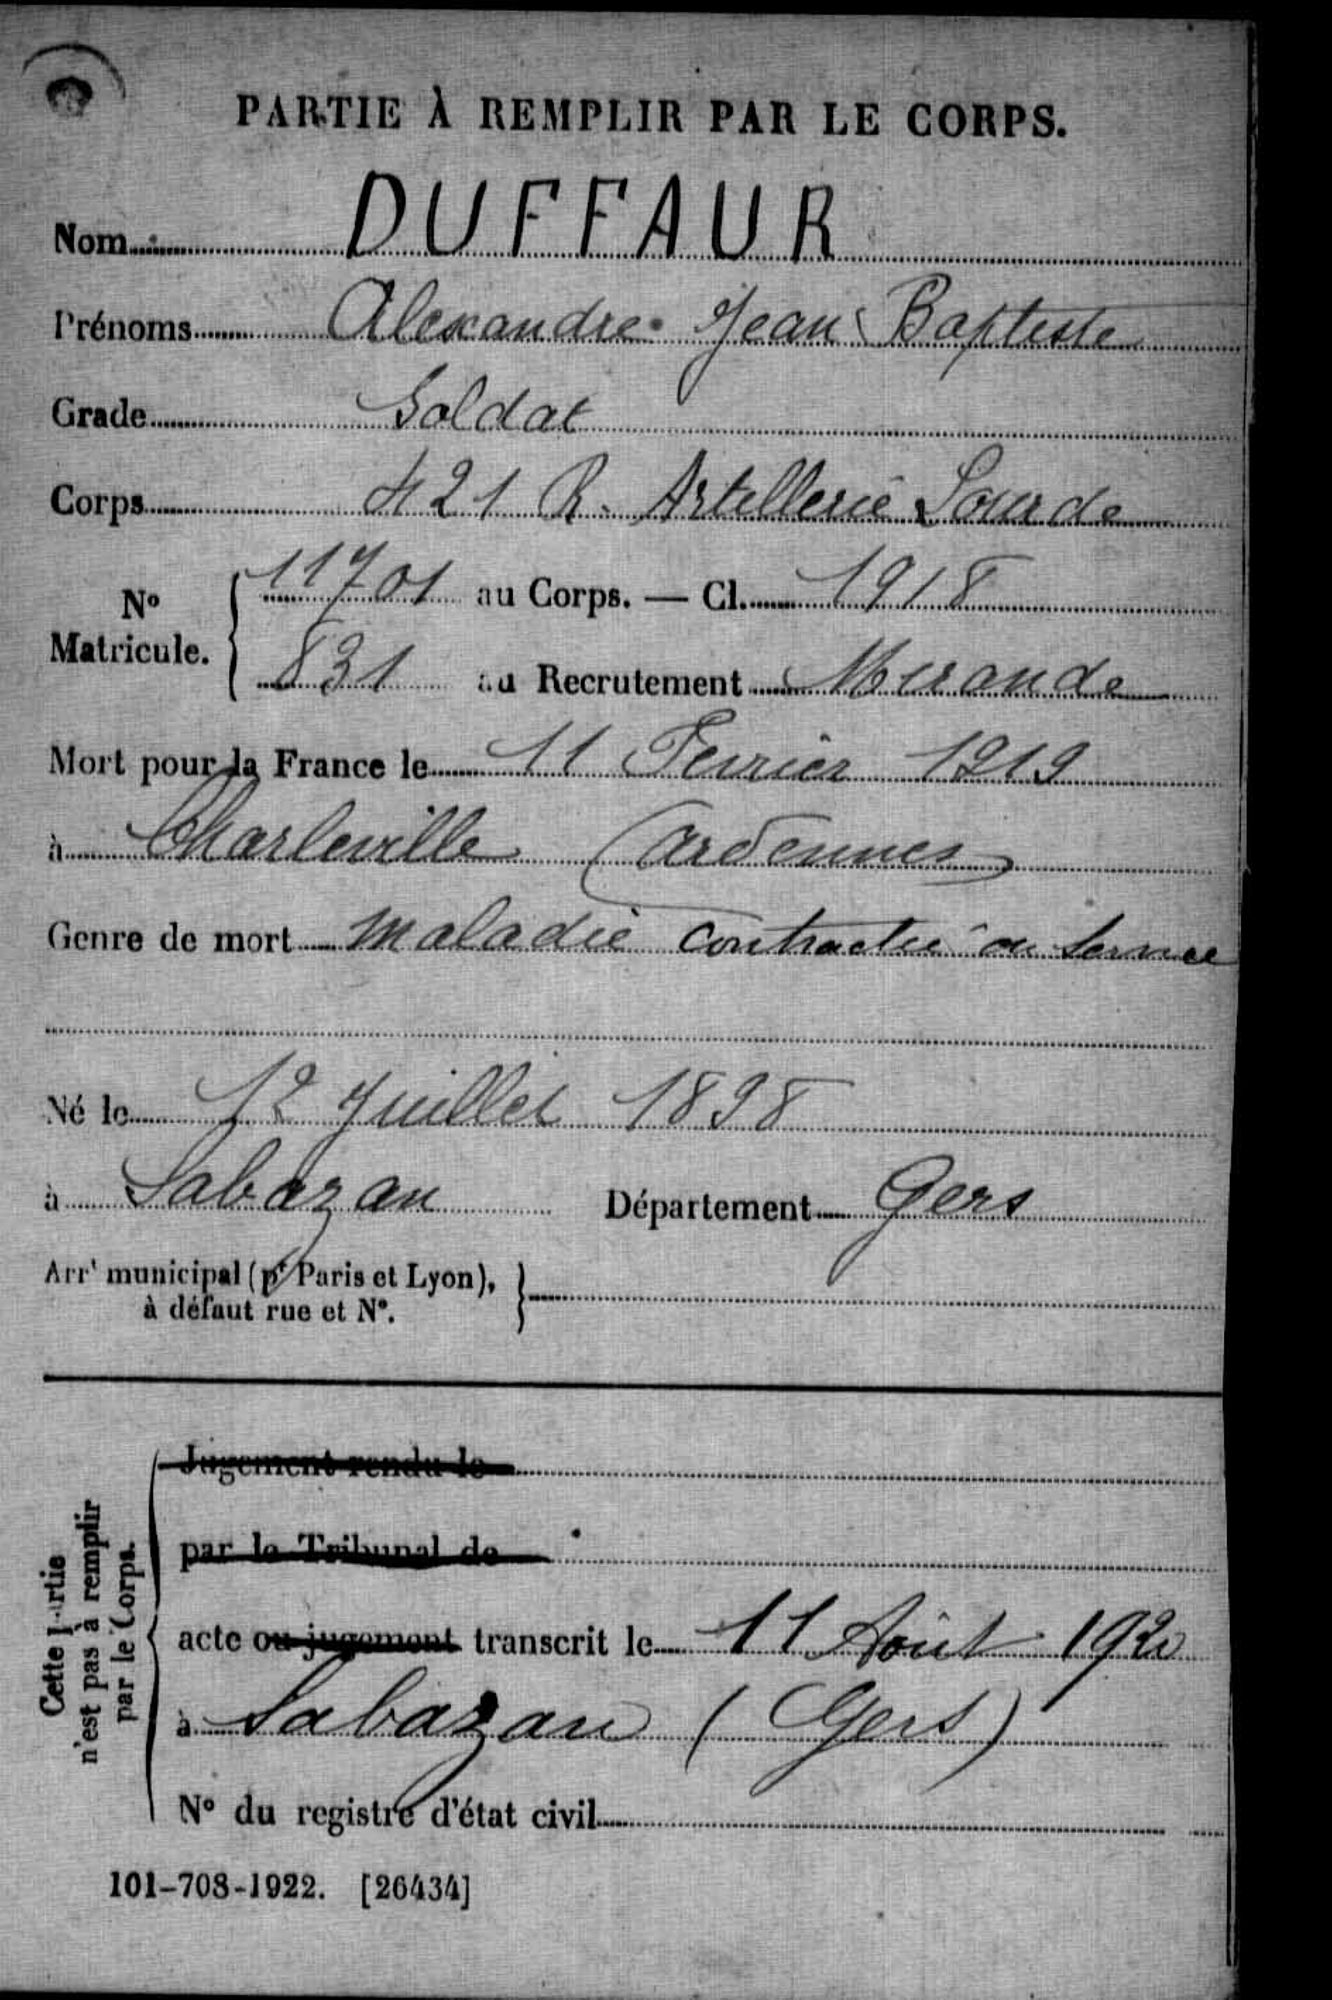 PARTIE À REMPLIR PAR LE CORPS.
Nom DUFFAUR
Prénoms Alexandre Jean Baptiste
Grade Soldat
Corps 421 R. Artillerie Lourde
N° Matricule. 11701 au Corps. — Cl. 1918
831 au Recrutement Mirande
Mort pour la France le 11 Fevrier 1919
à Charleville (Ardennes)
Genre de mort Maladie contractée en service
Né le 12 Juillet 1898
à Sabazan Département Gers
Arrt municipal (pr Paris et Lyon),
à défaut rue et N°.
Cette partie
n'est pas à remplir
par le Corps.
Jugement rendu le
par le Tribunal de
acte ou jugement transcrit le 11 Août 1920
à Sabazan (Gers)
N° du registre d'état civil
101-708-1922. [26434]